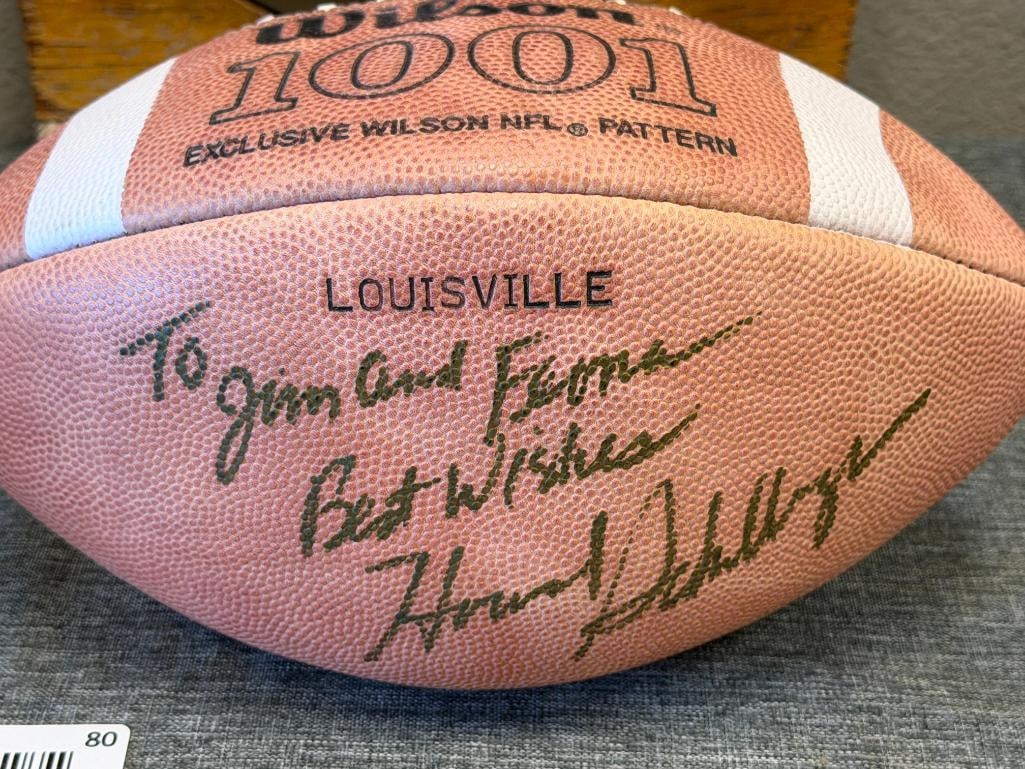 Wilson
1001
EXCLUSIVE WILSON NFL ® PATTERN
LOUISVILLE
To Jim and
Best Wishes
Howard Schnellenberger
80